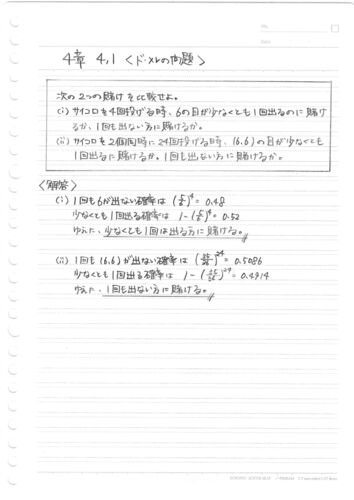 4章 4.1 〈ド・メレの問題〉
次の2つの賭けを比較せよ。
(i) サイコロを4回投げる時、6の目が少なくとも1回出るのに賭け
るか、1回も出ない方に賭けるか。
(ii) サイコロを2個同時に24回投げる時、(6.6)の目が少なくとも
1回出るに賭けるか。1回も出ないに賭けるか。
〈解答〉
(i) 1回も6が出ない確率は (5/6)^4 = 0.48
少なくとも1回出る確率は 1-(5/6)^4 = 0.52
ゆえに、少なくとも1回は出る方に賭ける。
(ii) 1回も(6.6)が出ない確率は (35/36)^24 = 0.5086
少なくとも1回出る確率は 1-(35/36)^24 = 0.4914
ゆえに、1回も出ない方に賭ける。